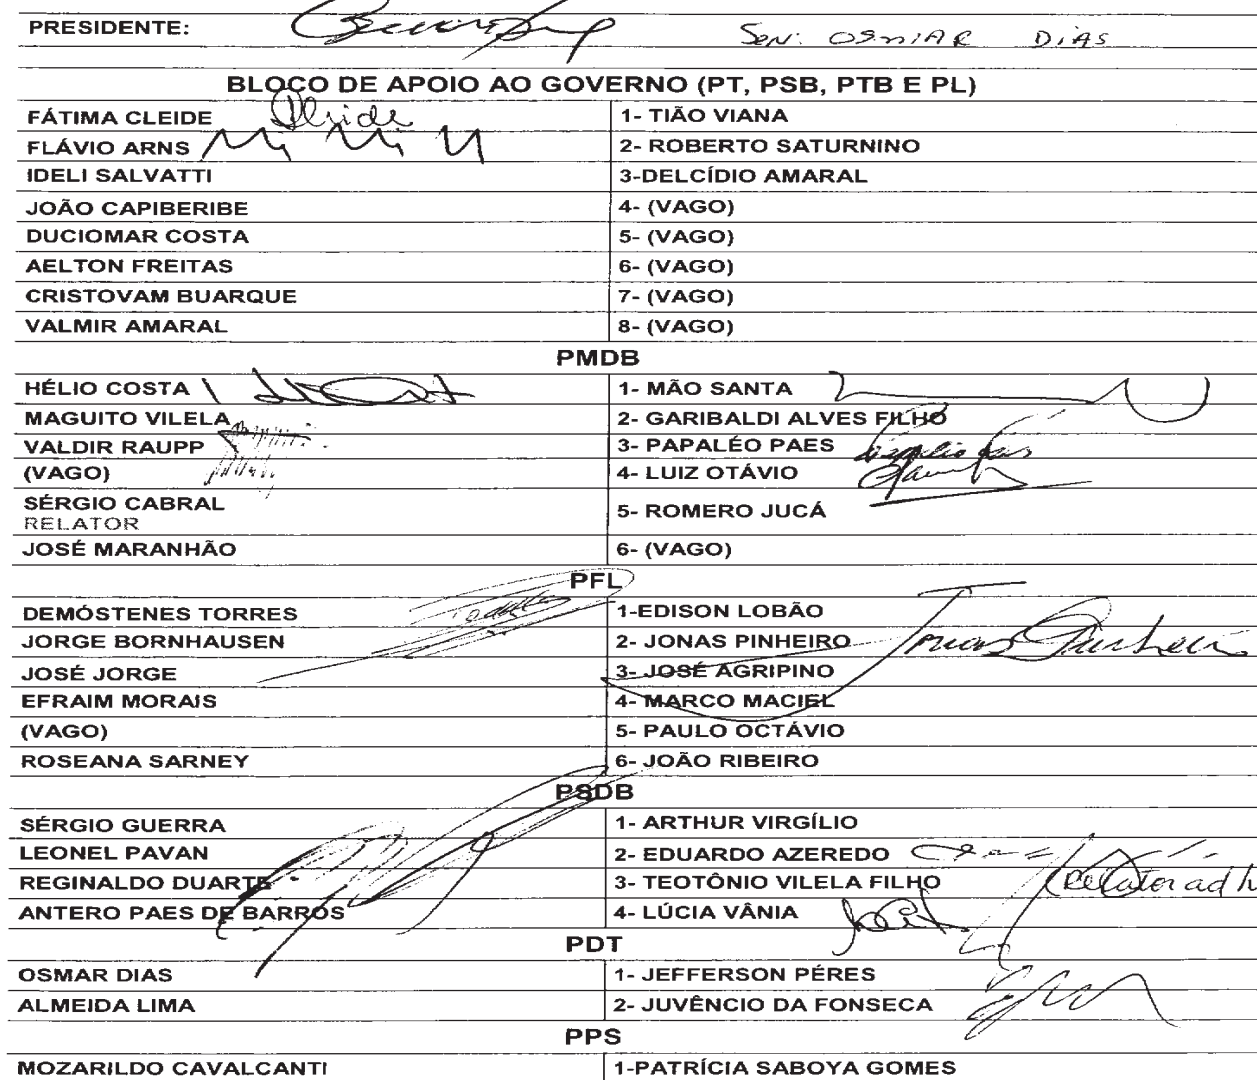 PRESIDENTE: SEN: OSMAR DIAS
BLOCO DE APOIO AO GOVERNO (PT, PSB, PTB E PL)
FÁTIMA CLEIDE Cleide 1- TIÃO VIANA
FLÁVIO ARNS 2- ROBERTO SATURNINO
IDELI SALVATTI 3-DELCÍDIO AMARAL
JOÃO CAPIBERIBE 4- (VAGO)
DUCIOMAR COSTA 5- (VAGO)
AELTON FREITAS 6- (VAGO)
CRISTOVAM BUARQUE 7- (VAGO)
VALMIR AMARAL 8- (VAGO)
PMDB
HÉLIO COSTA 1- MÃO SANTA
MAGUITO VILELA 2- GARIBALDI ALVES FILHO
VALDIR RAUPP 3- PAPALÉO PAES
(VAGO) 4- LUIZ OTÁVIO
SÉRGIO CABRAL 5- ROMERO JUCÁ
RELATOR
JOSÉ MARANHÃO 6- (VAGO)
PFL
DEMÓSTENES TORRES 1-EDISON LOBÃO
JORGE BORNHAUSEN 2- JONAS PINHEIRO Jonas Pinheiro
JOSÉ JORGE 3- JOSÉ AGRIPINO
EFRAIM MORAIS 4- MARCO MACIEL
(VAGO) 5- PAULO OCTÁVIO
ROSEANA SARNEY 6- JOÃO RIBEIRO
PSDB
SÉRGIO GUERRA 1- ARTHUR VIRGÍLIO
LEONEL PAVAN 2- EDUARDO AZEREDO
REGINALDO DUARTE 3- TEOTÔNIO VILELA FILHO (Relator ad h
ANTERO PAES DE BARROS 4- LÚCIA VÂNIA
PDT
OSMAR DIAS 1- JEFFERSON PÉRES
ALMEIDA LIMA 2- JUVÊNCIO DA FONSECA
PPS
MOZARILDO CAVALCANTI 1-PATRÍCIA SABOYA GOMES